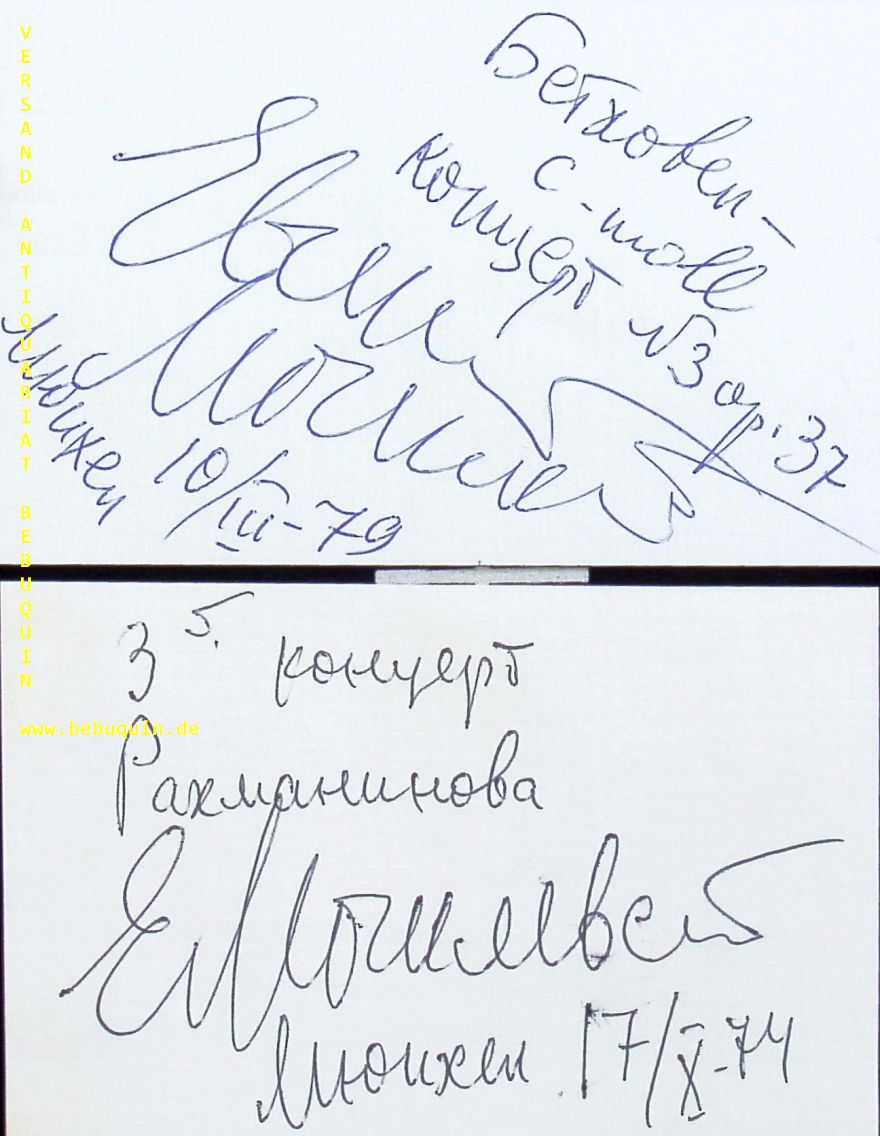 Бетховен-
c-moll
концерт №3 op.37
Евгений
Могилевский
Мюнхен
10/III-79
3й. концерт
Рахманинова
ЕМогилевский
Мюнхен 17/X-74
VERSAND ANTIQUARIAT BEBUQUIN
www.bebuquin.de